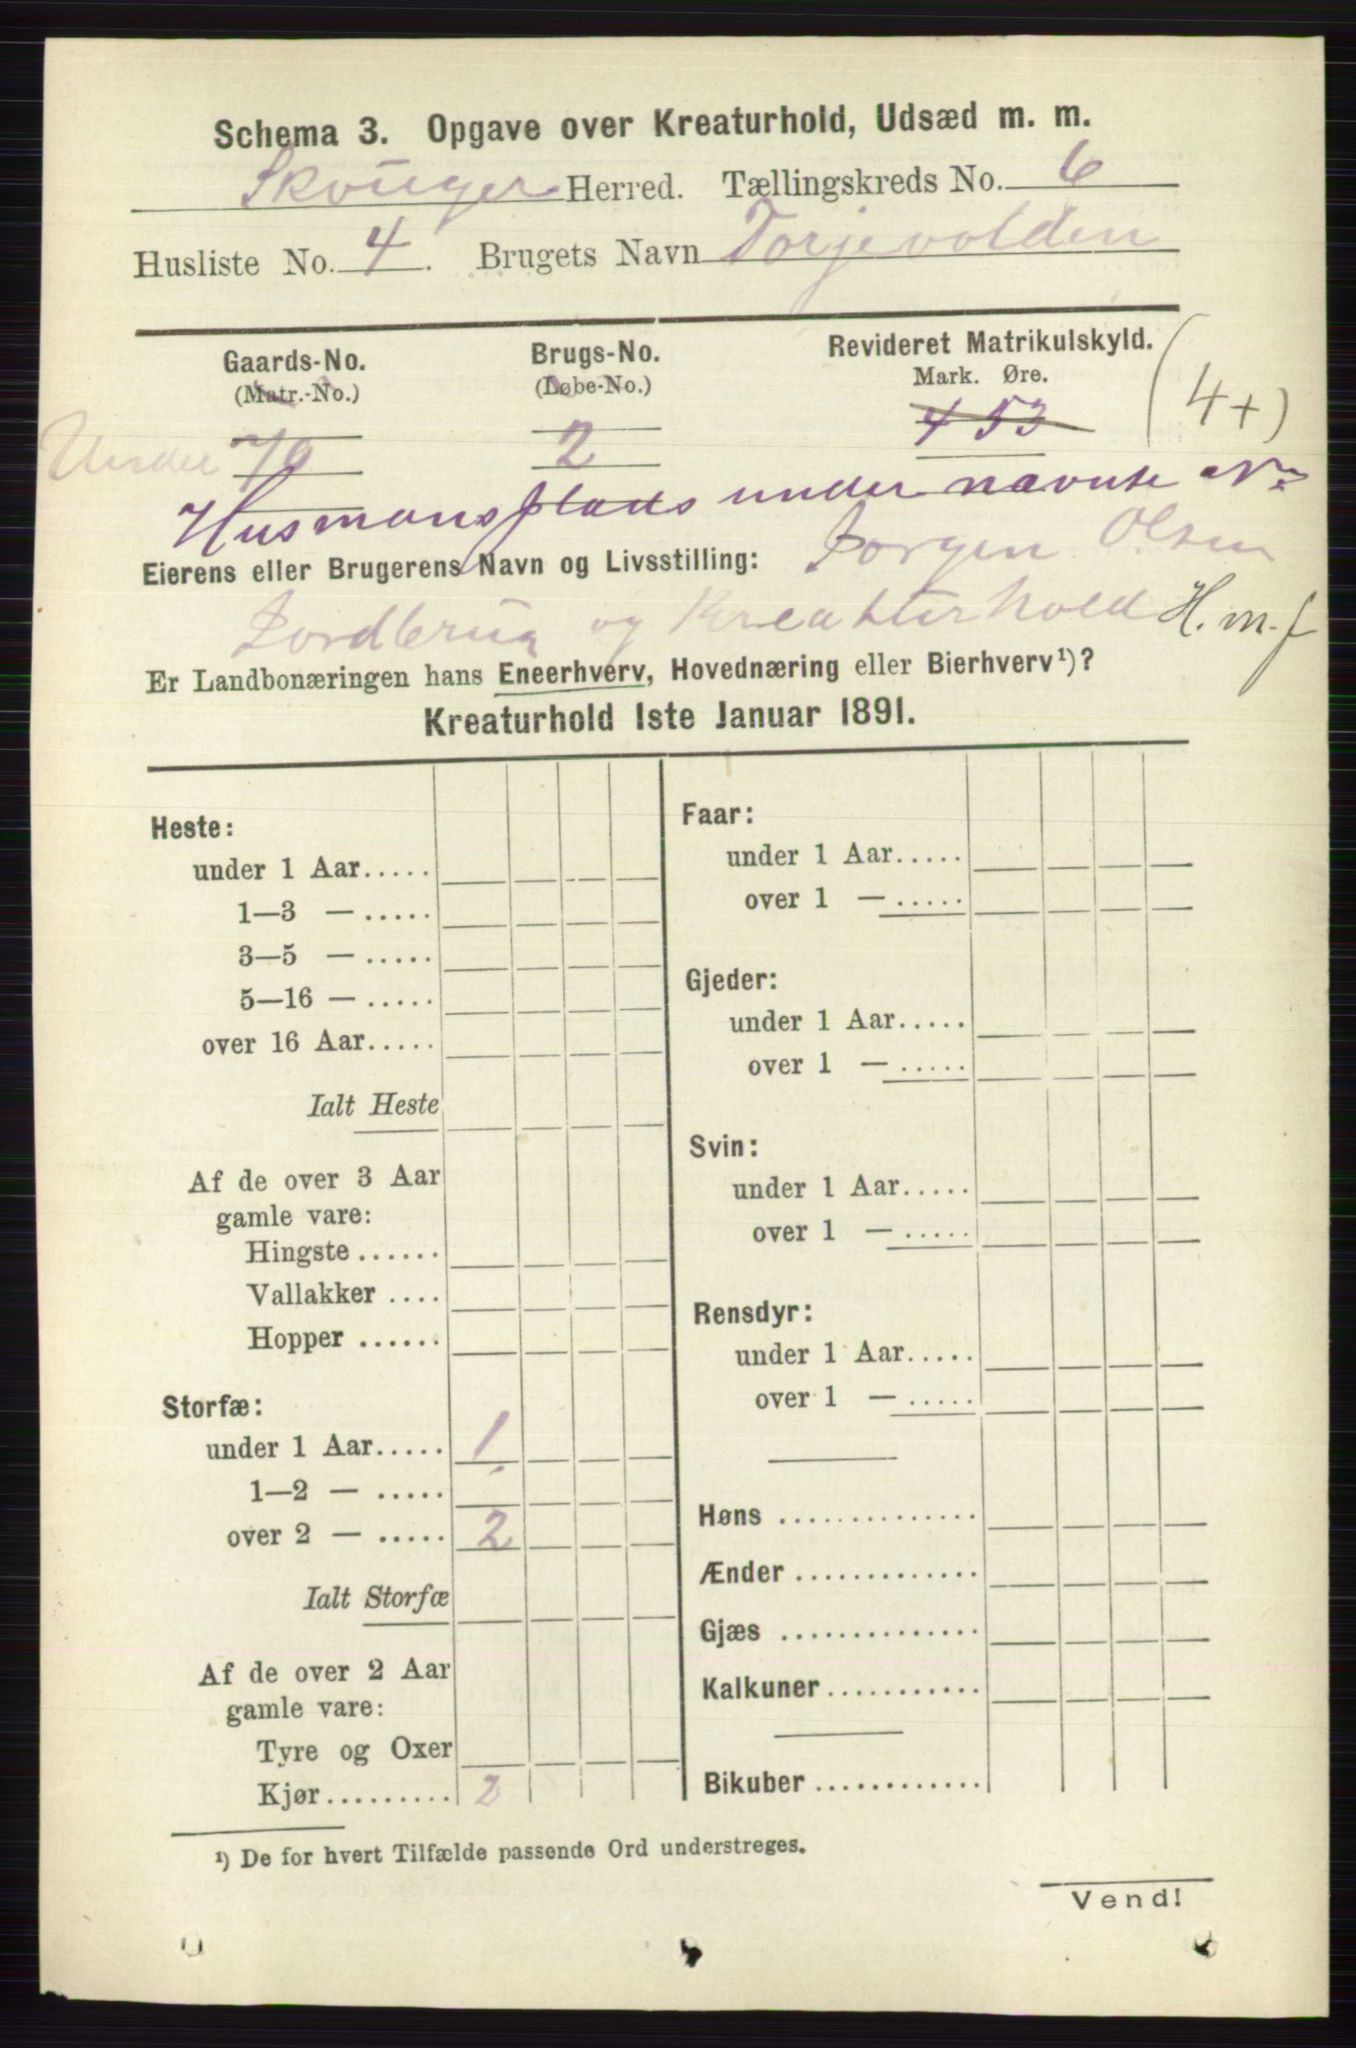 Schema 3. Opgave over Kreaturhold, Udsæd m. m.
Skouger Herred. Tællingskreds No. 6
Husliste No. 4. Brugets Navn Torjevolden
Gaards-No. Brugs-No. Revideret Matrikulskyld.
(Matr.-No.) (Løbe-No.) Mark. Øre.
Under 70 2 4 53 (4+)
Husmansplads under nævnte No
Eierens eller Brugerens Navn og Livsstilling: Jørgen Olsen
Jordbrug og Kreaturhold H. m. j
Er Landbonæringen hans Eneerhverv, Hovednæring eller Bierhverv¹)?
Kreaturhold 1ste Januar 1891.
Heste:
under 1 Aar.....
1—3 — .....
3—5 — .....
5—16 — .....
over 16 Aar.....
Ialt Heste
Af de over 3 Aar
gamle vare:
Hingste ......
Vallakker ....
Hopper ......
Storfæ:
under 1 Aar..... 1
1—2 — .....
over 2 — ..... 2
Ialt Storfæ
Af de over 2 Aar
gamle vare:
Tyre og Oxer
Kjør......... 2
Faar:
under 1 Aar.....
over 1 — .....
Gjeder:
under 1 Aar.....
over 1 — .....
Svin:
under 1 Aar.....
over 1 — .....
Rensdyr:
under 1 Aar.....
over 1 — .....
Høns ..............
Ænder .............
Gjæs ..............
Kalkuner...........
Bikuber ............
¹) De for hvert Tilfælde passende Ord understreges.
Vend!